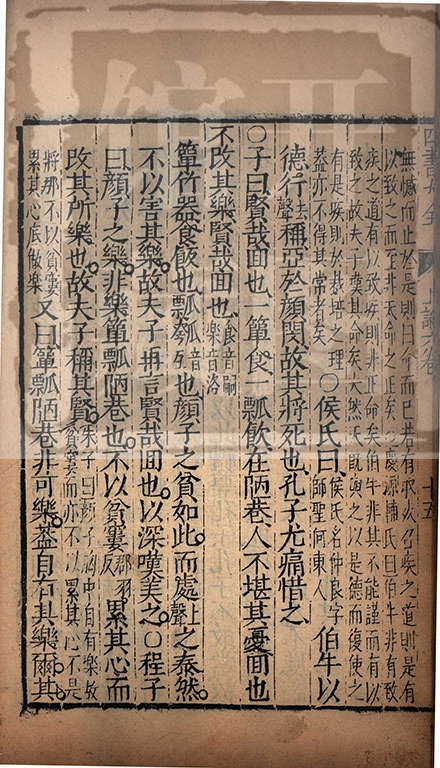 無憾而止於是則曰命而已若有取災召疾之道則是有
以致之而至非天命之正矣慶源輔氏曰伯牛非有致
疾之道有以致疾則非正命矣伯牛非其不能謹而有以
致之故夫子歎其命矣夫然天既與之以是德而復使之
有是疾則於栽培之理
蓋亦不得其常者矣
○侯氏曰
侯氏名仲良字
師聖河東人
伯牛以
德行去聲稱亞於顏閔故其將死也孔子尤痛惜之
○子曰賢哉回也一簞食一瓢飲在陋巷人不堪其憂回也
不改其樂賢哉回也
食音嗣
樂音洛
簞竹器食飯也瓢瓠也顏子之貧如此而處上聲之泰然
不以害其樂故夫子再言賢哉回也以深嘆美之○程子
曰顏子之樂非樂簞瓢陋巷也不以貧窶郡羽反累其心而
改其所樂也故夫子稱其賢
朱子曰顏子胸中自有樂故
貧窶而亦不以累其心不是
將那不以貧窶
累其心底做樂
又曰簞瓢陋巷非可樂蓋自有其樂爾其
十五